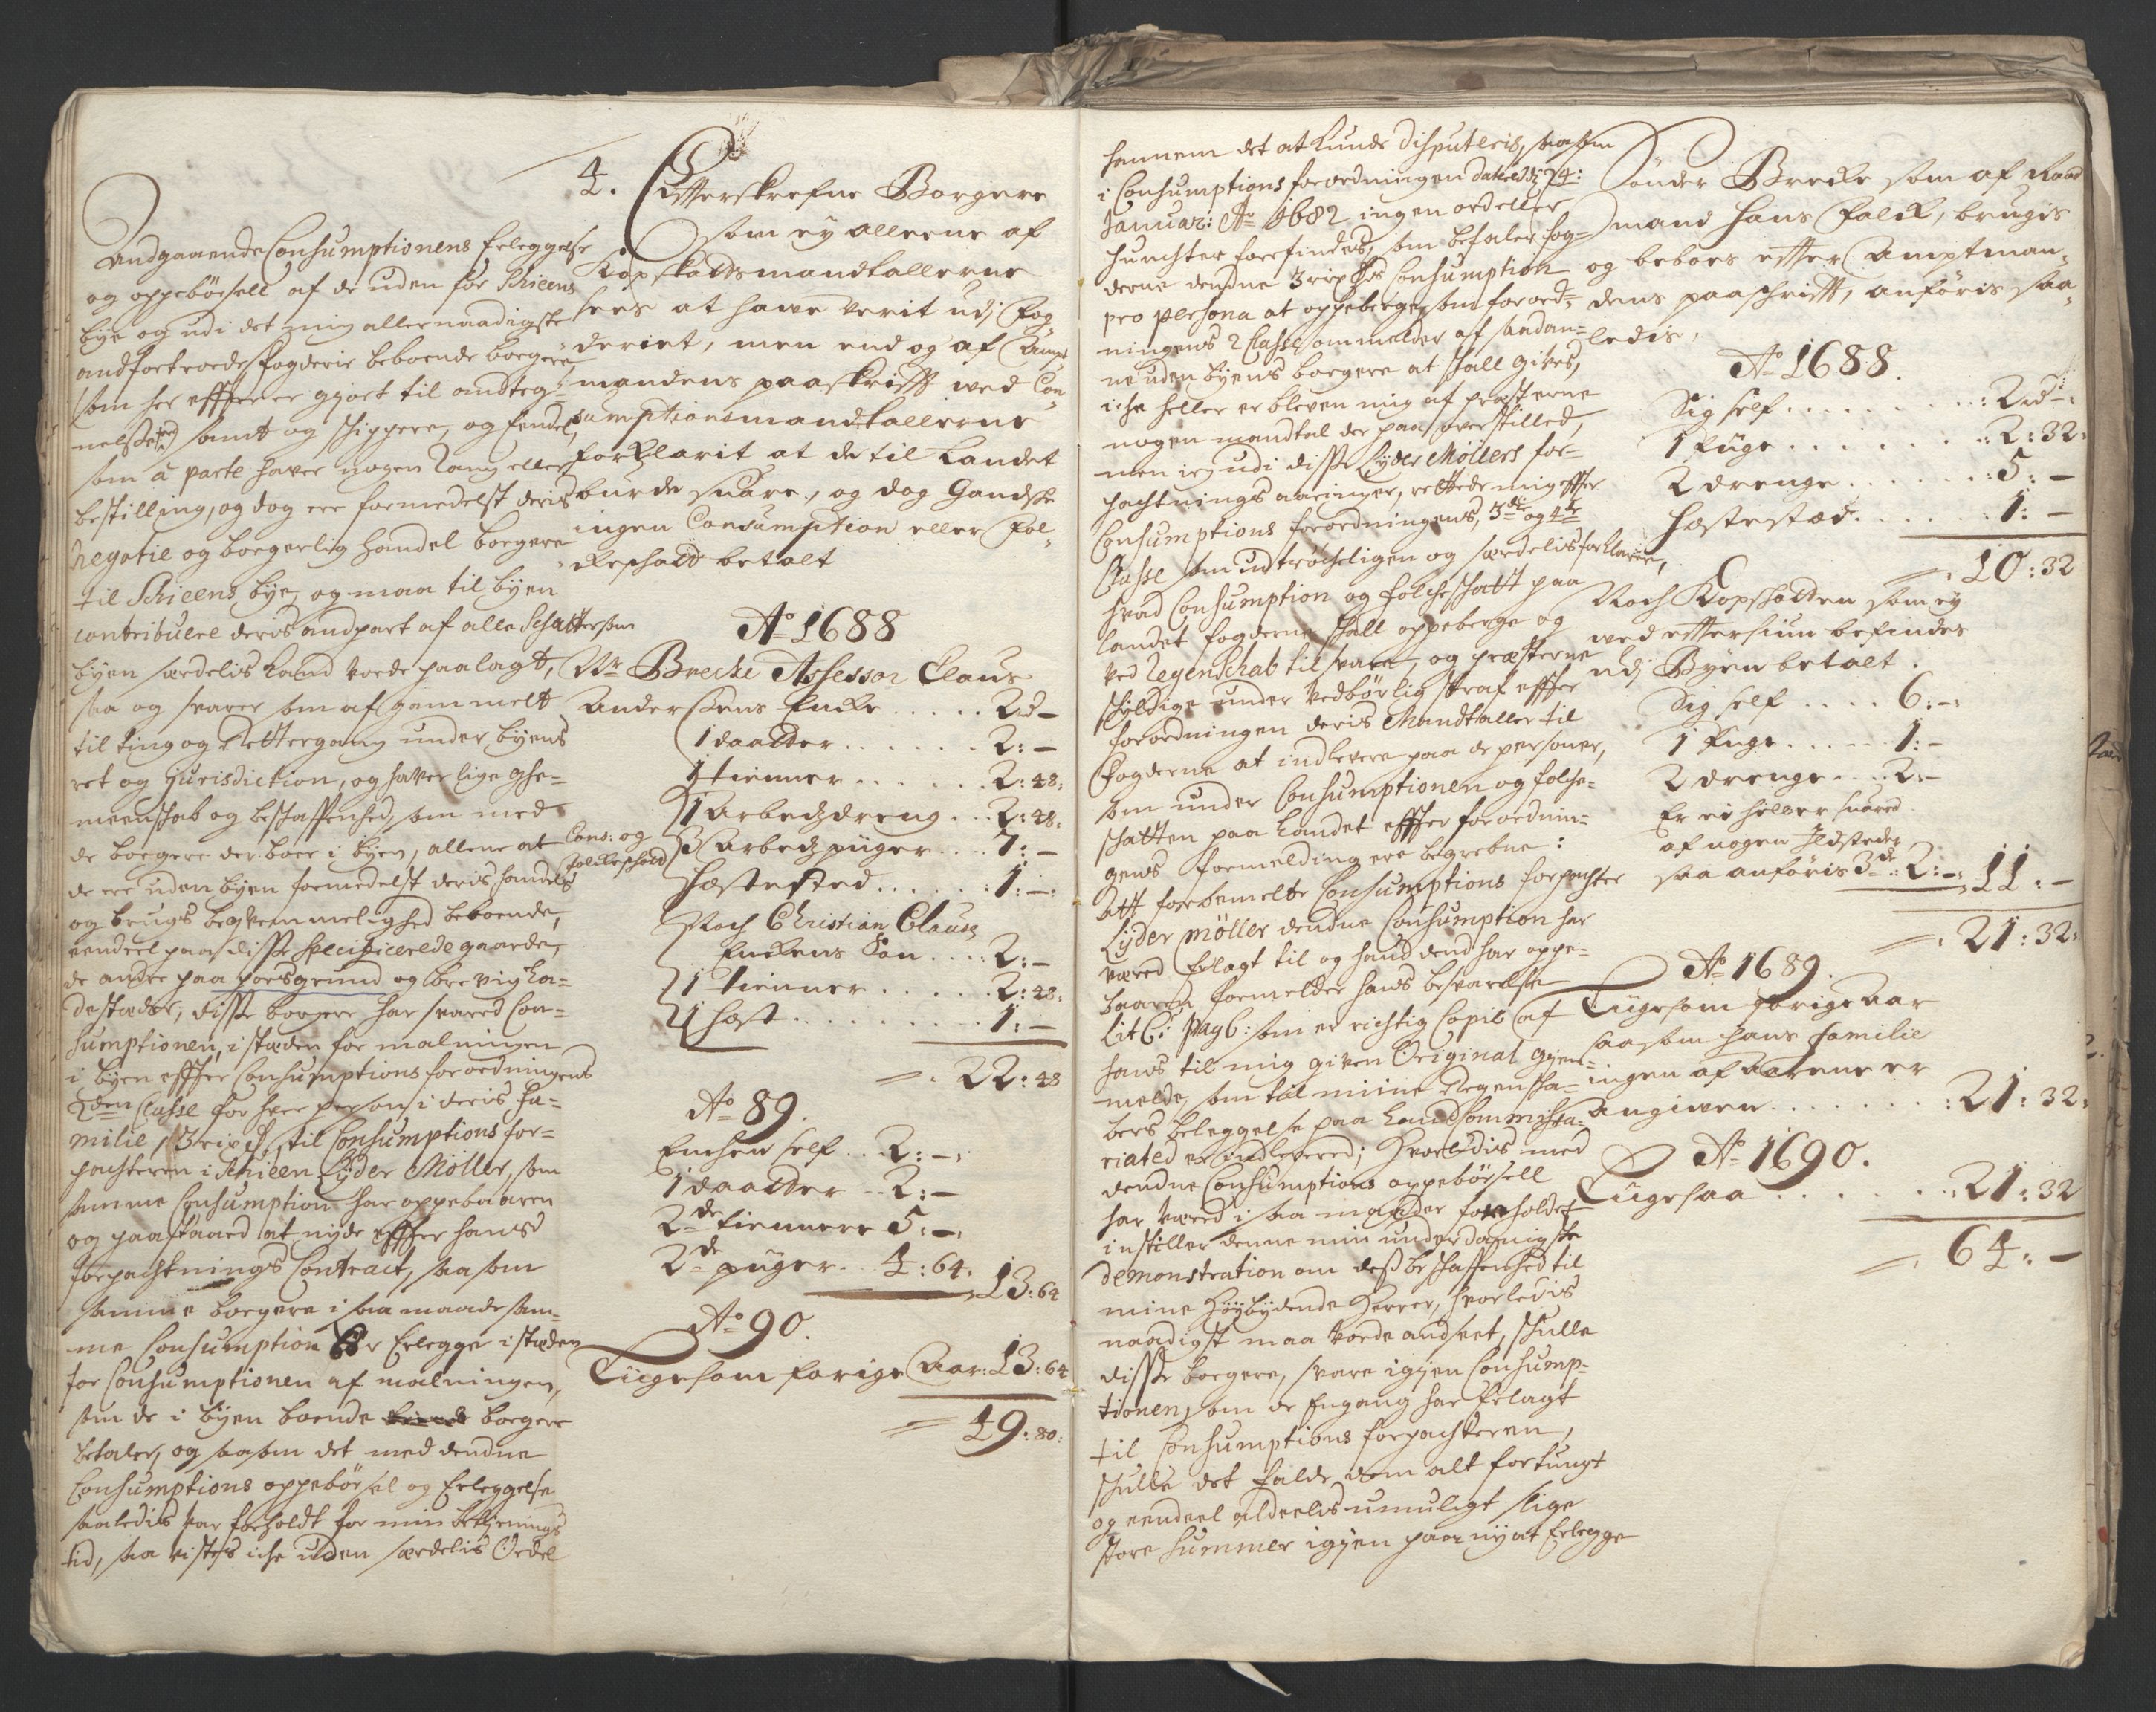 Andgaaende Consumptionens Erleggelse
og oppebörsell af de uden for Schieens
bÿe og udi det mig allernaadigste
andfortroede fogderie boboende borgere
som her effter er giort til andteg-
nelsse, samt og schippere, og Eendel
som à parte haver nogen Rang eller
bestilling, og dog ere formedelst deris
Negotie og borgerlig handel borgere
til Schieens bÿe, og maa til bÿen
contribuere deris andpart af alle Schatter som
bÿen særdelis kand vorde paalagt,
saa og svarer som af gammelt
til ting og Rettergang under bÿens
ret og Jurisdiction, og haver lige ghe-
meenschab og beschaffenhed, som med
de borgere der boer i bÿen, allene at
de ere uden bÿen formedelst deris handels
og brugs beqvemmelighed beboende,
eendeel paa disse specificerede gaarde,
de andre paa porsgrund og brevig La-
destæder, disse borgere har svared Con-
sumptionen, i stæden for malningen
i bÿen effter Consumptions forordningens
2den Classe for hver person i deris fa-
milie, 3 rixd, til Consumptions for-
pachteren i Schieen Lÿder Møller, som
samme Consumption har oppebaaren
og paastaaed at nÿde effter hans
forpachtnings Contract, saa som
samme borgere i saa maade sam-
me Consumption bør Erlegge i stæden
for Consumptionen af malningen,
som de i bÿen boende borgere
betaler, og saasom det med dendne
Consumptions oppebörsel og Erleggelse
saaledis var forholdt for min betienings
tid, saa vistes iche uden særdelis Ordre
4. Effterskrefne Borgere
som eÿ alleene af
Kopskattsmandtallerne
sees at hawe verit udj Fog
deriet, men end og af Ampt
mandens paaskrifft wed Con
sumptionsmandtallerne
forklarit at de til Landet
burde suare, og dog Gandske
ingen Consumption eller Fol-
ckeskatt betalt
Ao 1688
Nr Brecke Assessor Claus
Anderssens Encke ..... 2 rd -
1 daatter ....... 2: -
1 tienner ...... 2: 48:
1 Arbedzdreng ... 2: 48:
Cons: og
folckeskatt
3 Arbedz piiger .... 7: -
Hæstested ...... 1: -
Noch Christian Clauss
Enckens Sön .... 2: -
1 tienner ..... 2: 48:
1 Hæst ......... 1: -
22: 48
Ao 89.
Enchen self .. 2: -
1 daatter .. 2: -
2de tiennere 5: -
2de piiger .. 4: 64. 13: 64
Ao 90.
Liigesom forige Aar: 13: 64
49: 80:
hannem det at kunde disputeris, saasom
i Consumptions forordningen dateret d: 24:
Januar: Ao 1682 ingen ord eller
puncter forefindes, som befaler fog-
derne dendne 3 rixdrs Consumption
pro persona at oppeberge, som forord-
ningens 2 Classe ommelder af saadan-
ne uden bÿens borgere at skall gives,
iche heller er bleven mig af præsterne
nogen mandtal der paa overstilled,
men ieg udi disse Lÿder Møllers for-
pachtnings aaringer, rettede mig effter
Consumptions forordningens, 3die og 4de
Classe som udtrÿcheligen og særdelis forklarer,
hvad Consumption og folcheschatt paa
landet fogderne skall oppeberge og
ved Regenschab til svare, og præsterne
schÿldige under vedbörlig straf effter
forordningen deris Mandtaller til
fogderne at indlevere paa de personer,
som under Consumptionen og folche-
schatten paa Landet effter forordnin-
gens formelding ere begrebne:
Att forbemelte Consumptions forpachter
Lÿder Møller dendne Consumption har
været Erlagt til og hand dend har oppe-
baaren formelder hans besvarelse
Lit C: pag 6: som er richtig Copie af
hans til mig given Original gien-
melde, som til miine Regenska-
bers beleggelse paa Land Commissa-
riated er indlevered; Hvorledis med
dendne Consumptions oppebörsell
har været i saa maader forholdet
instiller denne min underdanigste
demonstration om dess beschaffenhed til
mine Höÿbÿdende Herrer, hvorledis
naadigst maa vorde andseet, skulle
disse borgere, svare igien Consump-
tionen, som de Engang har Erlagt
til Consumptions forpachteren,
skulle det falde dem alt fortungt
og eendeel aldeelis umuligt slige
store Summer igien paa nÿ at Erlegge
Sönder Brecke som af Raad
mand Hans Falck, brugis
og beboes effter Amptman-
dens paaschrifft, anföris saa-
ledis,
Ao 1688.
Sig self ........ 2 rd -
1 Piige ....... 2: 32:
2 drenge ...... 5: -
Hæstestæd ...... 1: -
10: 32
Noch Kopskatten som eÿ
wed effterseiun befindes
udj Byen betalt.
Sig self .... 6: -
1 Piige ..... 1: -
2 drenge .... 2: -
Er ei heller suared
af nogen Ildsteder
saa anföris 3de .. 2: - 11: -
21: 32:
Ao 1689.
Liigesom forige Aar
saasom hans familie
ingen af Aarene er
angiwen ....... 21: 32:
Ao 1690.
Liigesaa ....... 21: 32
64: -